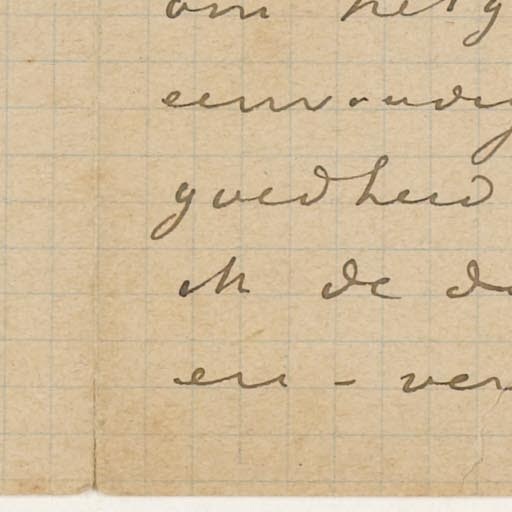 om hetg
eenvoudig
goedheid
M de da
en - ver